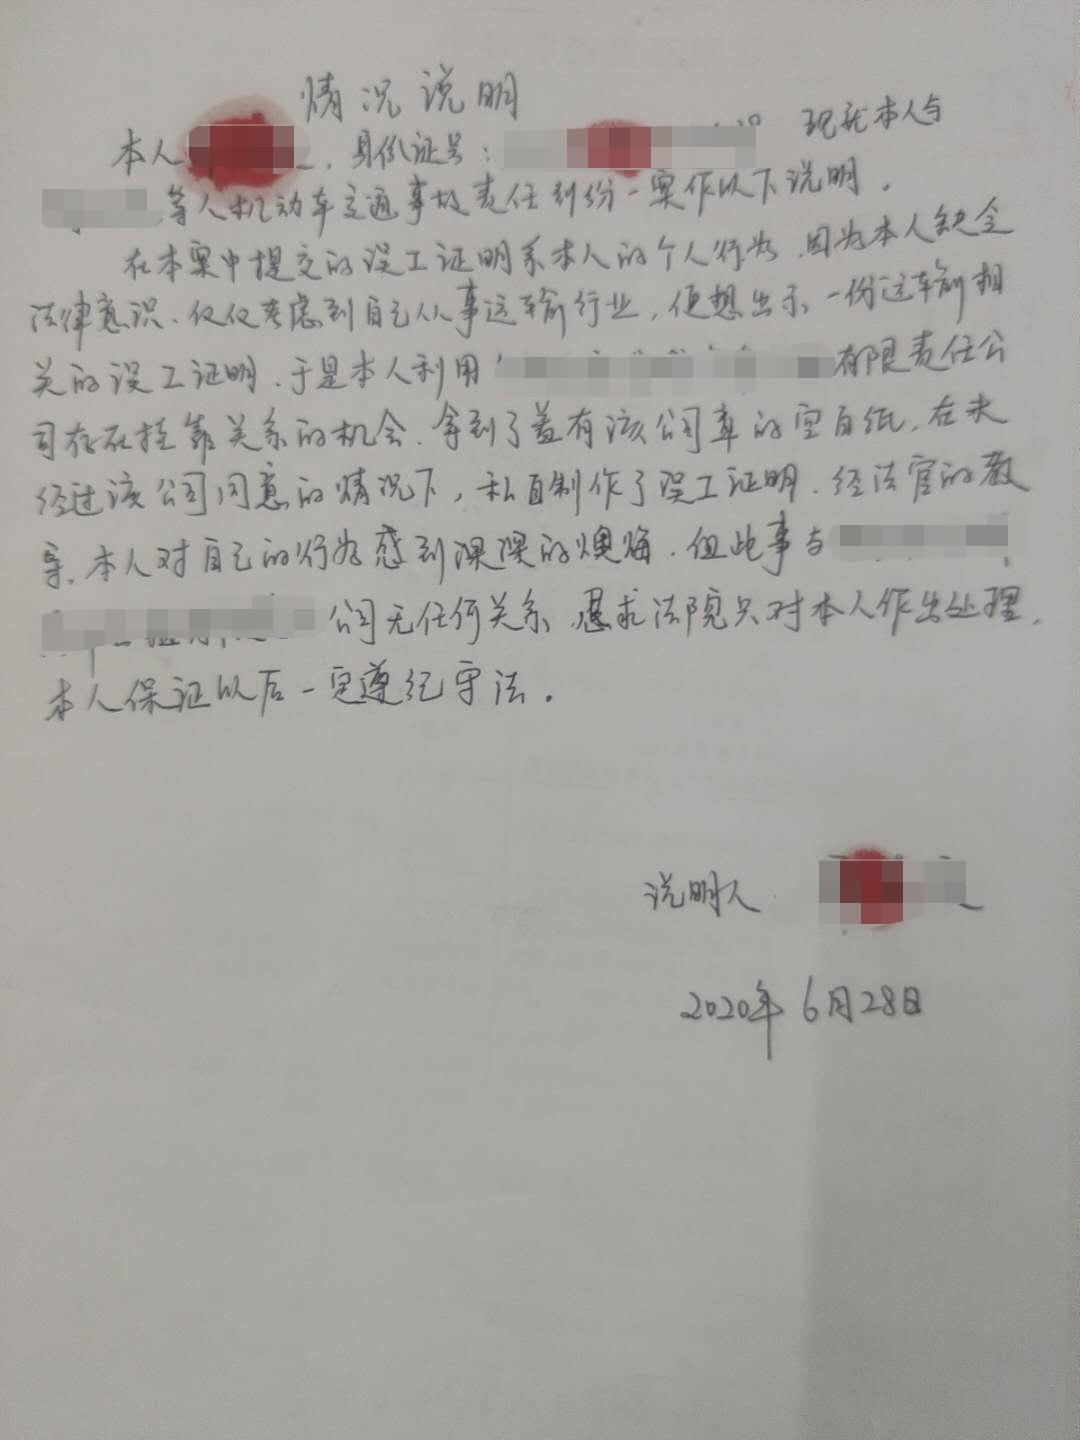 情况说明
本人，身份证号： 现就本人与
等人机动车交通事故责任纠纷一案作以下说明。
在本案中提交的误工证明系本人的个人行为，因为本人缺乏
法律意识，仅仅考虑到自己从事运输行业，便想出示一份运输相
关的误工证明，于是本人利用 有限责任公
司存在挂靠关系的机会，拿到了盖有该公司章的空白纸，在未
经过该公司同意的情况下，私自制作了误工证明，经法官的教
导，本人对自己的行为感到深深的懊悔，但此事与
公司无任何关系，恳求法院只对本人作出处理，
本人保证以后一定遵纪守法。
说明人
2020年6月28日